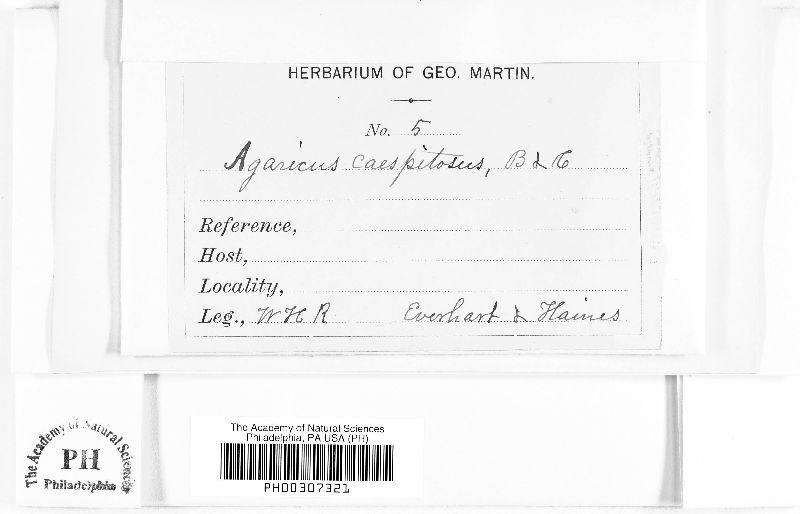 HERBARIUM OF GEO. MARTIN.
No. 5
Agaricus caespitosus, B & C
Reference,
Host,
Locality,
Leg., W H R Everhart & Haines
The Academy of Natural Sciences
PH
Philadelphia
The Academy of Natural Sciences
Philadelphia, PA USA (PH)
PH00307321